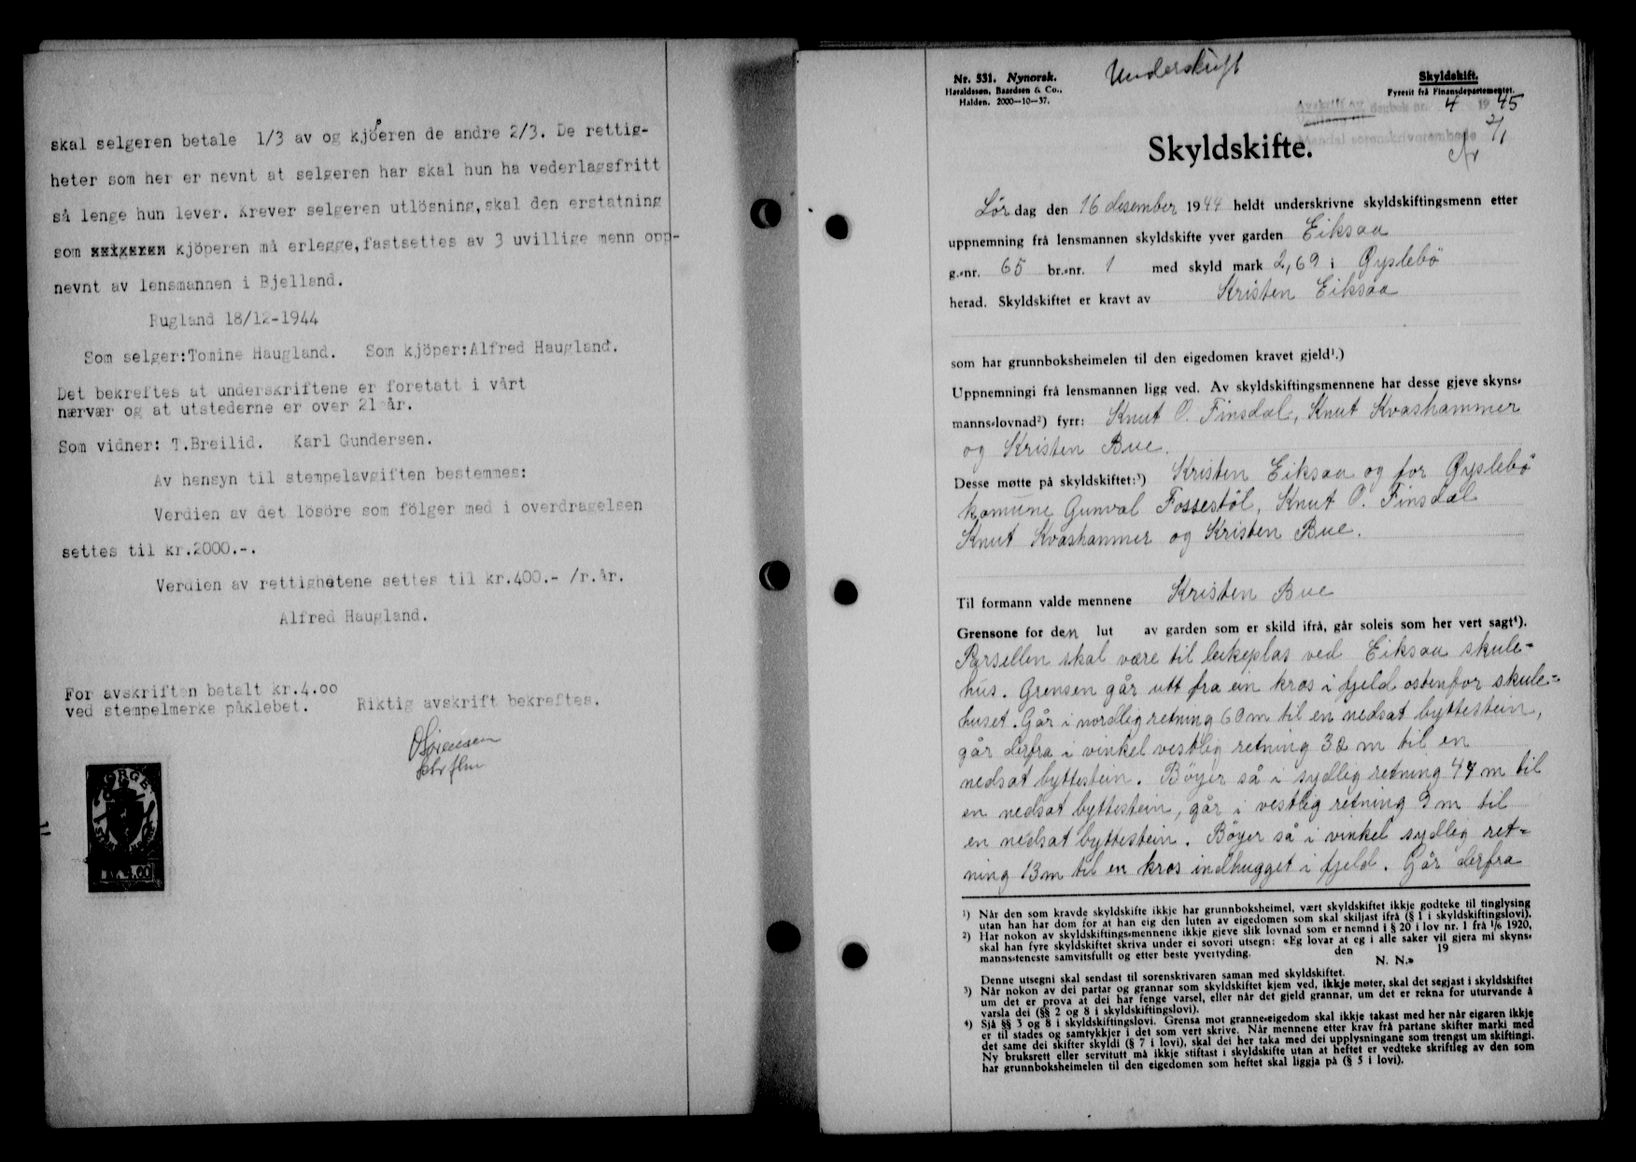 skal selgeren betale 1/3 av og kjöperen de andre 2/3. De rettig-
heter som her er nevnt at selgeren har skal hun ha vederlagsfritt
så lenge hun lever. Krever selgeren utlösning, skal den erstatning
som xxxxxxxx kjöperen må erlegge, fastsettes av 3 uvillige menn opp-
nevnt av lensmannen i Bjelland.
Rugland 18/12-1944
Som selger: Tomine Haugland. Som kjöper: Alfred Haugland.
Det bekreftes at underskriftene er foretatt i vårt
nærvær og at utstederne er over 21 år.
Som vidner: T. Breilid. Karl Gundersen.
Av hensyn til stempelavgiften bestemmes:
Verdien av det lösöre som fölger med i overdragelsen
settes til kr.2000.-.
Verdien av rettighetene settes til kr.400.- /r.år.
Alfred Haugland.
For avskriften betalt kr.4.00
ved stempelmerke påklebet.
Riktig avskrift bekreftes.
O Sörensen
NORGE
4.00
Nr. 531. Nynorsk.
Haraldssen, Baardsen & Co.,
Halden. 2000—10—37.
Underskrift
Skyldskift.
Fyresit frå Finansdepartementet.
Avskrift av dagbok nr. 4 1945
Mandal sorenskrivarembede 2/1
Skyldskifte.
Lördag den 16 desember 1944 heldt underskrivne skyldskiftingsmenn etter
uppnemning frå lensmannen skyldskifte yver garden Eiksaa
g.-nr. 65 br.-nr. 1 med skyld mark 2,69 i Öyslebö
herad. Skyldskiftet er kravt av Kristen Eiksaa
som har grunnboksheimelen til den eigedomen kravet gjeld¹.)
Uppnemningi frå lensmannen ligg ved. Av skyldskiftingsmennene har desse gjeve skyns-
manns-lovnad²) fyrr: Knut O. Finsdal, Knut Kvashammer
og Kristen Bue.
Desse møtte på skyldskiftet:³) Kristen Eiksaa og for Öyslebö
komune Gunval Fossestöl, Knut O. Finsdal
Knut Kvashammer og Kristen Bue.
Til formann valde mennene Kristen Bue
Grensone for den lut av garden som er skild ifrå, går soleis som her vert sagt⁴).
Parsellen skal være til leikeplas ved Eiksaa skule-
hus. Grensen går utt fra ein kros i fjeld ostenfor skule-
huset. Går i nordlig retning 60 m til en nedsat byttestein,
går derfra i vinkel vestlig retning 32 m til en
nedsat byttestein. Böyer så i sydlig retning 44 m til
en nedsat byttestein, går i vestlig retning 9 m til
en nedsat byttestein. Böyer så i vinkel sydlig ret-
ning 13 m til en kros indhugget i fjeld. Går derfra
¹) Når den som kravde skyldskifte ikkje har grunnboksheimel, vært skyldskiftet ikkje godteke til tinglysing
utan han har dom for at han eig den luten av eigedomen som skal skiljast ifrå (§ 1 i skyldskiftingslovi).
²) Har nokon av skyldskiftings-mennene ikkje gjeve slik lovnad som er nemnd i § 20 i lov nr. 1 frå 1/6 1920,
skal han fyre skyldskiftet skriva under ei sovori utsegn: «Eg lovar at eg i alle saker vil gjera mi skyns-
manns-teneste samvitsfullt og etter beste yvertyding. den 19
N. N.»
Denne utsegni skal sendast til sorenskrivaren saman med skyldskiftet.
³) Når nokon av dei partar og grannar som skyldskiftet kjem ved, ikkje møter, skal det segjast i skyldskiftet
um det er prova at dei har fenge varsel, eller når det gjeld grannar, um det er rekna for uturvande å
varsla dei (§§ 2 og 8 i skyldskiftingslovi).
⁴) Sjå §§ 3 og 8 i skyldskiftingslovi. Grensa mot granne-eigedom skal ikkje takast med her når eigaren ikkje
er til stades og samtykkjer i det som vert skrive. Når mennene etter krav frå partane skifter marki med
det same dei skifter skyldi (§ 7 i lovi), skal dei her taka med dei upplysningane som trengst um skiftingi.
Ny bruksrett eller servitutt må ikkje stiftast i skyldskifte utan at heftet er vedteke skriftleg av den som
har grunnboksheimelen til den eigedomen som heftet skal liggja på (§ 5 i lovi).